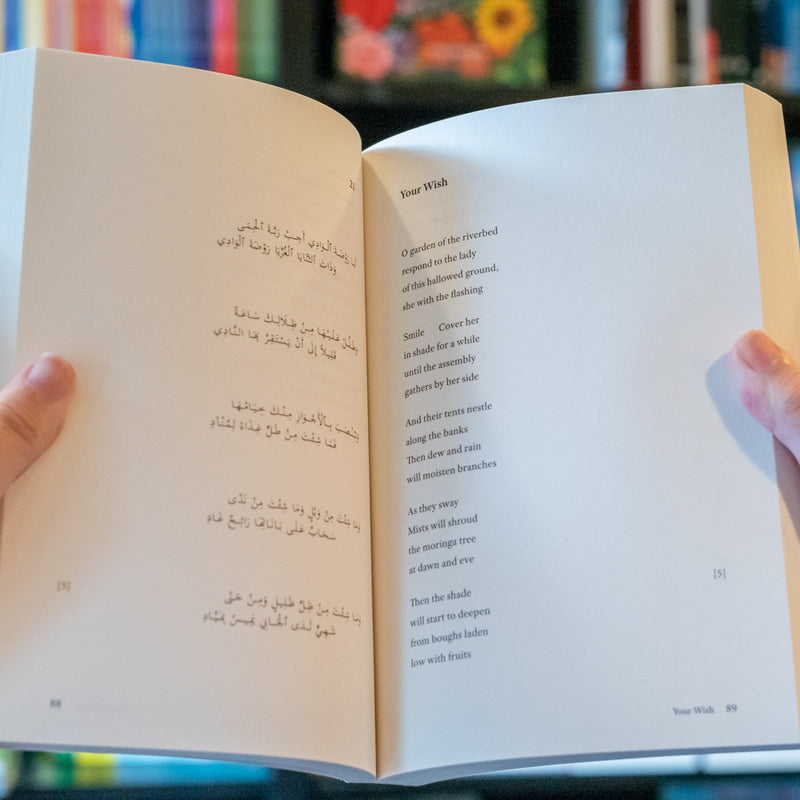 21
أَيَا رَوْضَةَ الْوَادِي أَجِبْ رَبَّةَ الْحِمَى
وَذَاتَ الثَّنَايَا الْغُرِّ يَا رَوْضَةَ الْوَادِي
وَظَلِّلْ عَلَيْهَا مِنْ ظِلَالِكَ سَاعَةً
قَلِيلًا إِلَى أَنْ يَسْتَقِرَّ بِهَا النَّادِي
وَتُنْصَبَ بِالْأَجْوَازِ مِنْكَ خِيَامُهَا
فَمَا شِئْتَ مِنْ طَلٍّ غِذَاءً لِمُنْآدِ
وَمَا شِئْتَ مِنْ وَبْلٍ وَمَا شِئْتَ مِنْ نَدًى
سَحَابٌ عَلَى بَانَاتِهَا رَائِحٌ غَادِ
وَمَا شِئْتَ مِنْ ظِلٍّ ظَلِيلٍ وَمِنْ جَنًى
شَهِيٍّ لَدَى الْجَانِي يَمِيسُ بِمَيَّادِ
[5]
88
Your Wish
O garden of the riverbed
respond to the lady
of this hallowed ground,
she with the flashing
Smile Cover her
in shade for a while
until the assembly
gathers by her side
And their tents nestle
along the banks
Then dew and rain
will moisten branches
As they sway
Mists will shroud
the moringa tree
at dawn and eve
[5]
Then the shade
will start to deepen
from boughs laden
low with fruits
Your Wish 89